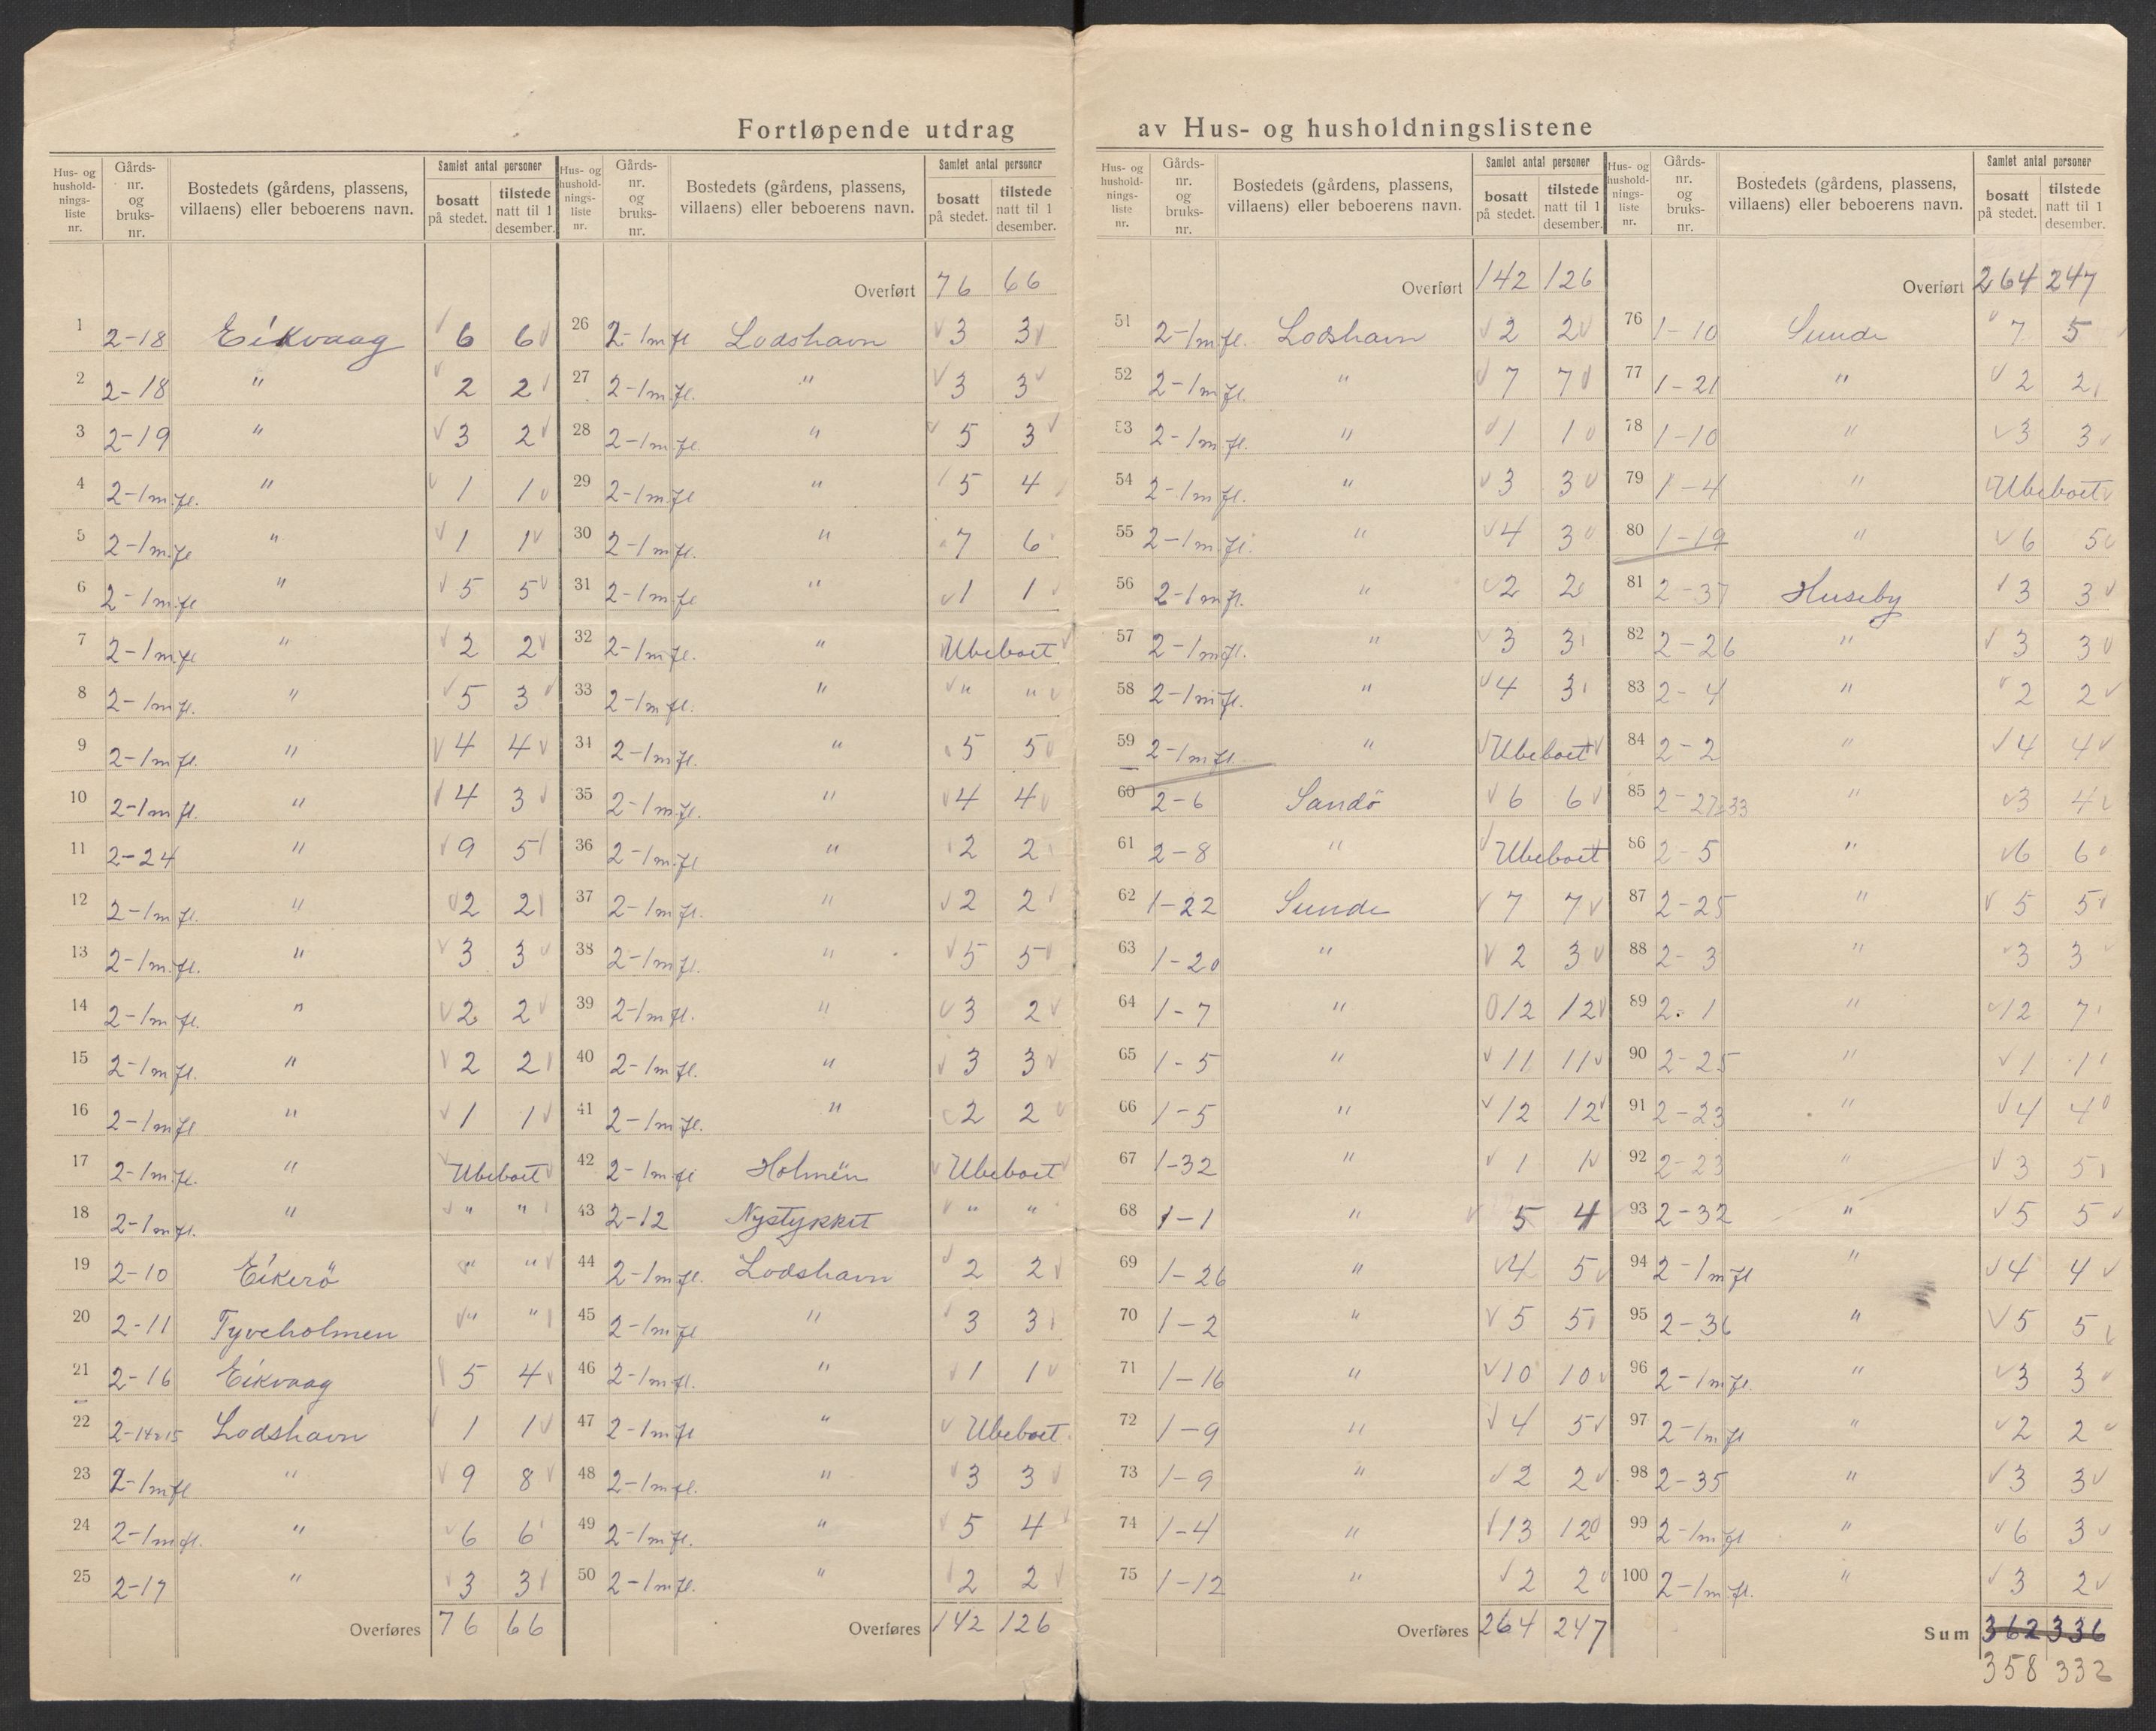 Fortløpende utdrag av Hus- og husholdningslistene
Hus- og husholdnings-liste nr. | Gårds-nr. og bruks-nr. | Bostedets (gårdens, plassens, villaens) eller beboerens navn. | Samlet antal personer bosatt på stedet. | tilstede natt til 1 desember.
1 2-18 Eikvaag 6 6
2 2-18 " 2 2
3 2-19 " 3 2
4 2-1 m.fl. " 1 1
5 2-1 m.fl " 1 1
6 2-1 m.fl " 5 5
7 2-1 m.fl " 2 2
8 2-1 m.fl. " 5 3
9 2-1 m.fl. " 4 4
10 2-1 m fl. " 4 3
11 2-24 " 9 5
12 2-1 m.fl. " 2 2
13 2-1 m.fl. " 3 3
14 2-1 m fl. " 2 2
15 2-1 m fl. " 2 2
16 2-1 m fl " 1 1
17 2-1 m.fl. " Ubeboet
18 2-1 m fl. " " "
19 2-10 Eikerö " "
20 2-11 Tyveholmen " "
21 2-16 Eikvaag 5 4
22 2-14 15 Lodshavn 1 1
23 2-1 m fl " 9 8
24 2-1 m fl. " 6 6
25 2-17 " 3 3
Overføres 76 66
Hus- og husholdnings-liste nr. | Gårds-nr. og bruks-nr. | Bostedets (gårdens, plassens, villaens) eller beboerens navn. | Samlet antal personer bosatt på stedet. | tilstede natt til 1 desember.
Overført 76 66
26 2-1 m fl Lodshavn 3 3
27 2-1 m.fl. " 3 3
28 2-1 m.fl " 5 3
29 2-1 m.fl " 5 4
30 2-1 m fl. " 7 6
31 2-1 m.fl " 1 1
32 2-1 m fl. " Ubeboet
33 2-1 m fl. " " "
34 2-1 m fl. " 5 5
35 2-1 m.fl. " 4 4
36 2-1 m.fl " 2 2
37 2-1 m fl. " 2 2
38 2-1 m fl. " 5 5
39 2-1 m fl. " 3 2
40 2-1 m fl. " 3 3
41 2-1 m.fl. " 2 2
42 2-1 m fl Holmen Ubeboet
43 2-12 Nystykket " "
44 2-1 m fl. Lodshavn 2 2
45 2-1 m fl " 3 3
46 2-1 m fl. " 1 1
47 2-1 m fl " Ubeboet
48 2-1 m fl. " 3 3
49 2-1 m fl. " 5 4
50 2-1 m fl. " 2 2
Overføres 142 126
Hus- og husholdnings-liste nr. | Gårds-nr. og bruks-nr. | Bostedets (gårdens, plassens, villaens) eller beboerens navn. | Samlet antal personer bosatt på stedet. | tilstede natt til 1 desember.
Overført 142 126
51 2-1 m fl. Lodshavn 2 2
52 2-1 m fl. " 7 7
53 2-1 m fl. " 1 1
54 2-1 m fl. " 3 3
55 2-1 m.fl. " 4 3
56 2-1 m fl. " 2 2
57 2-1 m fl. " 3 3
58 2-1 m fl. " 4 3
59 2-1 m fl. " Ubeboet
60 2-6 Sandö 6 6
61 2-8 " Ubeboet
62 1-22 Sunde 7 7
63 1-20 " 2 3
64 1-7 " 12 12
65 1-5 " 11 11
66 1-5 " 12 12
67 1-32 " 1 1
68 1-1 " 5 4
69 1-26 " 4 5
70 1-2 " 5 5
71 1-16 " 10 10
72 1-9 " 4 5
73 1-9 " 2 2
74 1-4 " 13 12
75 1-12 " 2 2
Overføres 264 247
Hus- og husholdnings-liste nr. | Gårds-nr. og bruks-nr. | Bostedets (gårdens, plassens, villaens) eller beboerens navn. | Samlet antal personer bosatt på stedet. | tilstede natt til 1 desember.
Overført 264 247
76 1-10 Sunde 7 5
77 1-21 " 2 2
78 1-10 " 3 3
79 1-4 " Ubeboet
80 1-19 " 6 5
81 2-37 Huseby 3 3
82 2-26 " 3 3
83 2-4 " 2 2
84 2-2 " 4 4
85 2-27 33 " 3 4
86 2-5 " 6 6
87 2-25 " 5 5
88 2-3 " 3 3
89 2-1 " 12 7
90 2-25 " 1 1
91 2-23 " 4 4
92 2-23 " 3 5
93 2-32 " 5 5
94 2-1 m fl " 4 4
95 2-36 " 5 5
96 2-1 m fl. " 3 3
97 2-1 m fl " 2 2
98 2-35 " 3 3
99 2-1 m fl " 6 3
100 2-1 m fl. " 3 2
Sum 362 336
358 332